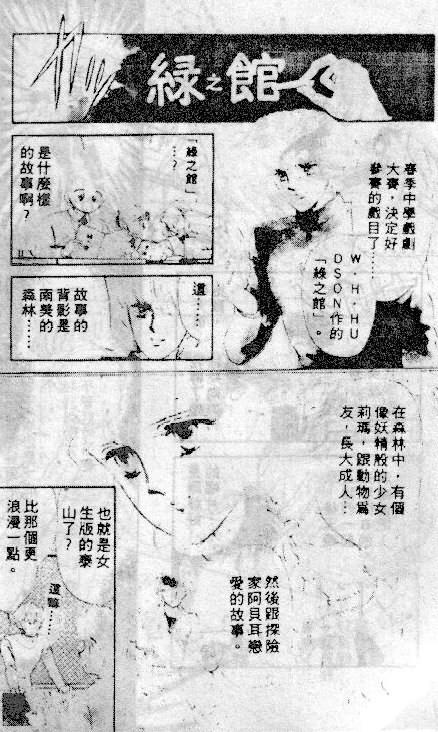 綠之館
春季中學戲劇
大賽，決定好
參賽的戲目了……
W·H·HU
DSON作的
「綠之館」。
「綠之館」
…？
是什麼樣
的故事啊？
這……
故事的
背影是
南美的
森林……
在森林中，有個
像妖精般的少女
莉瑪，跟動物為
友，長大成人…
然後跟探險
家阿貝耳戀
愛的故事。
也就是女
生版的泰
山了？
比那個更
浪漫一點。
這嘛……